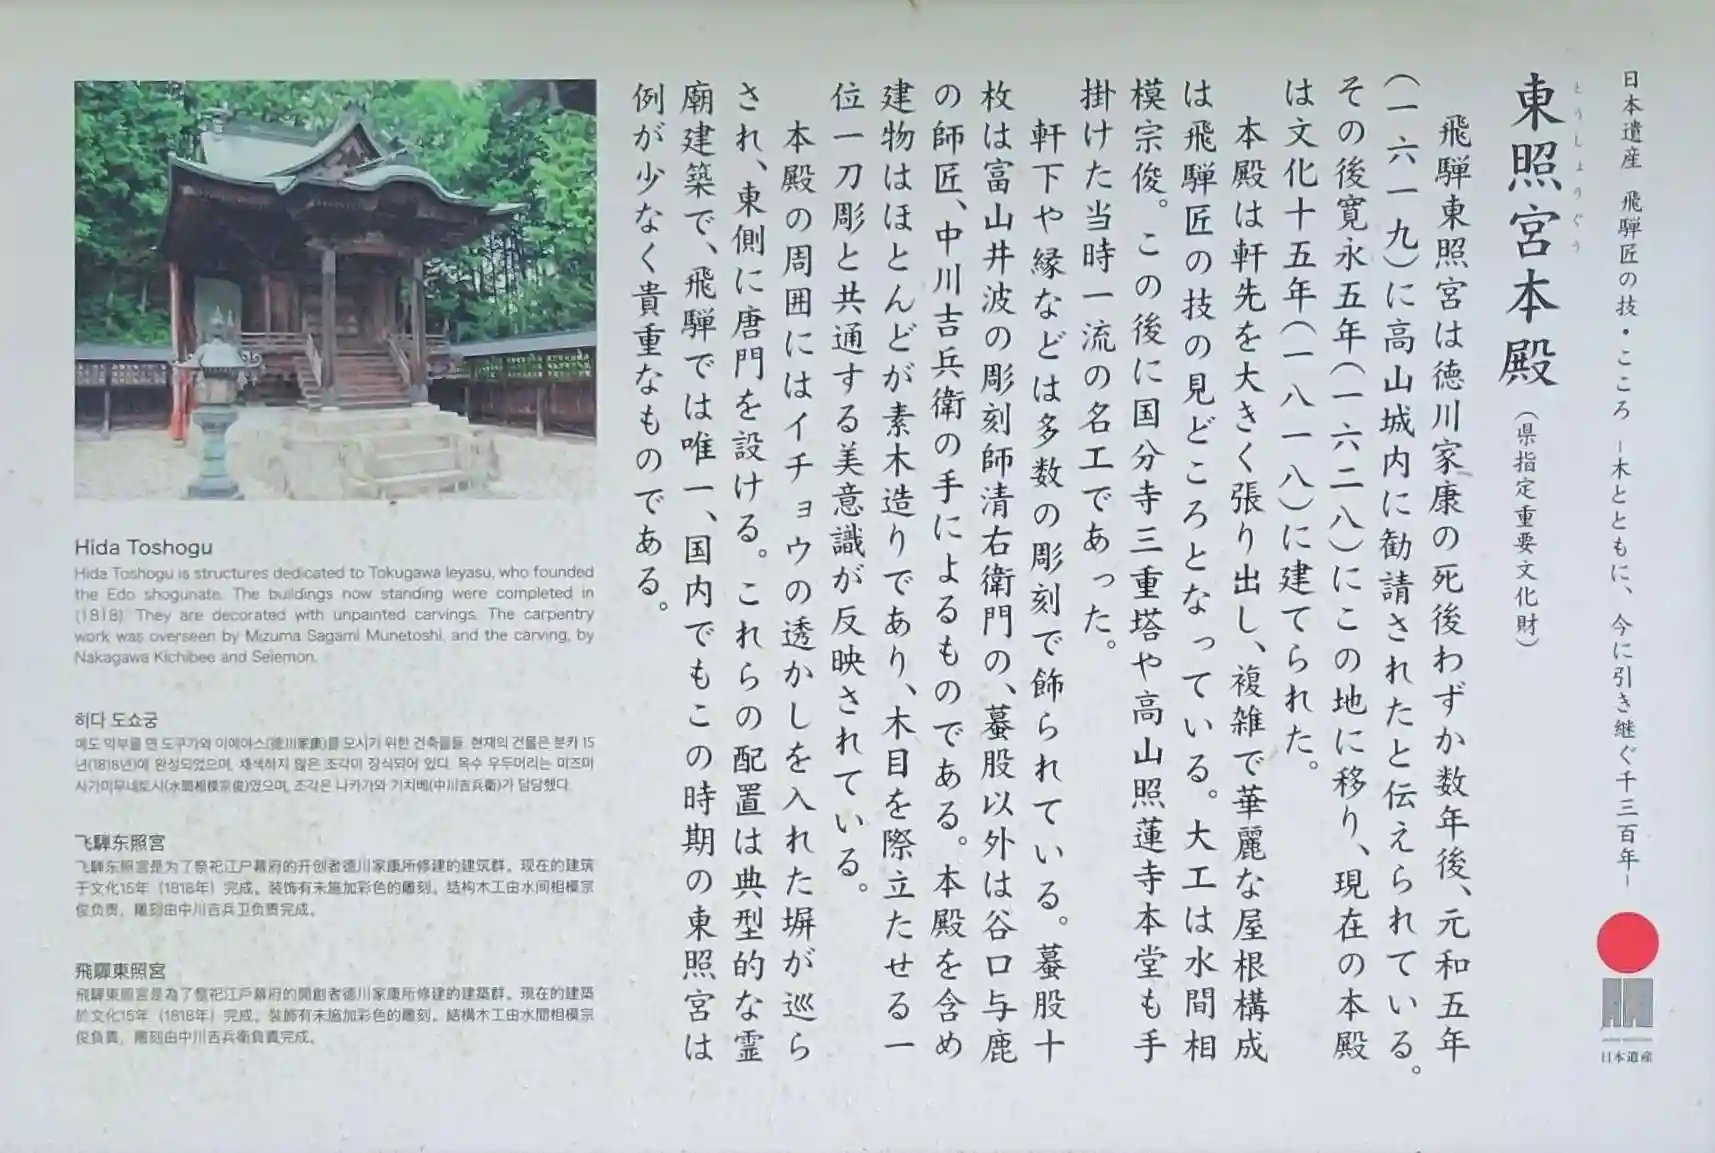 日本遺産 飛騨匠の技・こころ －木とともに、今に引き継ぐ千三百年－
とうしょうぐう
東照宮本殿（県指定重要文化財）
飛騨東照宮は徳川家康の死後わずか数年後、元和五年
（一六一九）に高山城内に勧請されたと伝えられている。
その後寛永五年（一六二八）にこの地に移り、現在の本殿
は文化十五年（一八一八）に建てられた。
本殿は軒先を大きく張り出し、複雑で華麗な屋根構成
は飛騨匠の技の見どころとなっている。大工は水間相
模宗俊。この後に国分寺三重塔や高山照蓮寺本堂も手
掛けた当時一流の名工であった。
軒下や縁などは多数の彫刻で飾られている。蟇股十
枚は富山井波の彫刻師清右衛門の、蟇股以外は谷口与鹿
の師匠、中川吉兵衛の手によるものである。本殿を含め
建物はほとんどが素木造りであり、木目を際立たせる一
位一刀彫と共通する美意識が反映されている。
本殿の周囲にはイチョウの透かしを入れた塀が巡ら
され、東側に唐門を設ける。これらの配置は典型的な霊
廟建築で、飛騨では唯一、国内でもこの時期の東照宮は
例が少なく貴重なものである。
日本遺産
Hida Toshogu
Hida Toshogu is structures dedicated to Tokugawa Ieyasu, who founded
the Edo shogunate. The buildings now standing were completed in
(1818). They are decorated with unpainted carvings. The carpentry
work was overseen by Mizuma Sagami Munetoshi, and the carving, by
Nakagawa Kichibee and Seiemon.
히다 도쇼궁
에도 막부를 연 도쿠가와 이에야스(徳川家康)를 모시기 위한 건축물들. 현재의 건물은 분카 15
년(1818년)에 완성되었으며, 채색하지 않은 조각이 장식되어 있다. 목수 우두머리는 미즈마
사가미무네토시(水間相模宗俊)였으며, 조각은 나카가와 기치베(中川吉兵衛)가 담당했다.
飞騨东照宫
飞騨东照宫是为了祭祀江户幕府的开创者德川家康所修建的建筑群。现在的建筑
于文化15年（1818年）完成。装饰有未施加彩色的雕刻。结构木工由水间相模宗
俊负责，雕刻由中川吉兵卫负责完成。
飛驒東照宮
飛驒東照宮是為了祭祀江戶幕府的開創者德川家康所修建的建築群。現在的建築
於文化15年（1818年）完成。裝飾有未施加彩色的雕刻。結構木工由水間相模宗
俊負責，雕刻由中川吉兵衛負責完成。